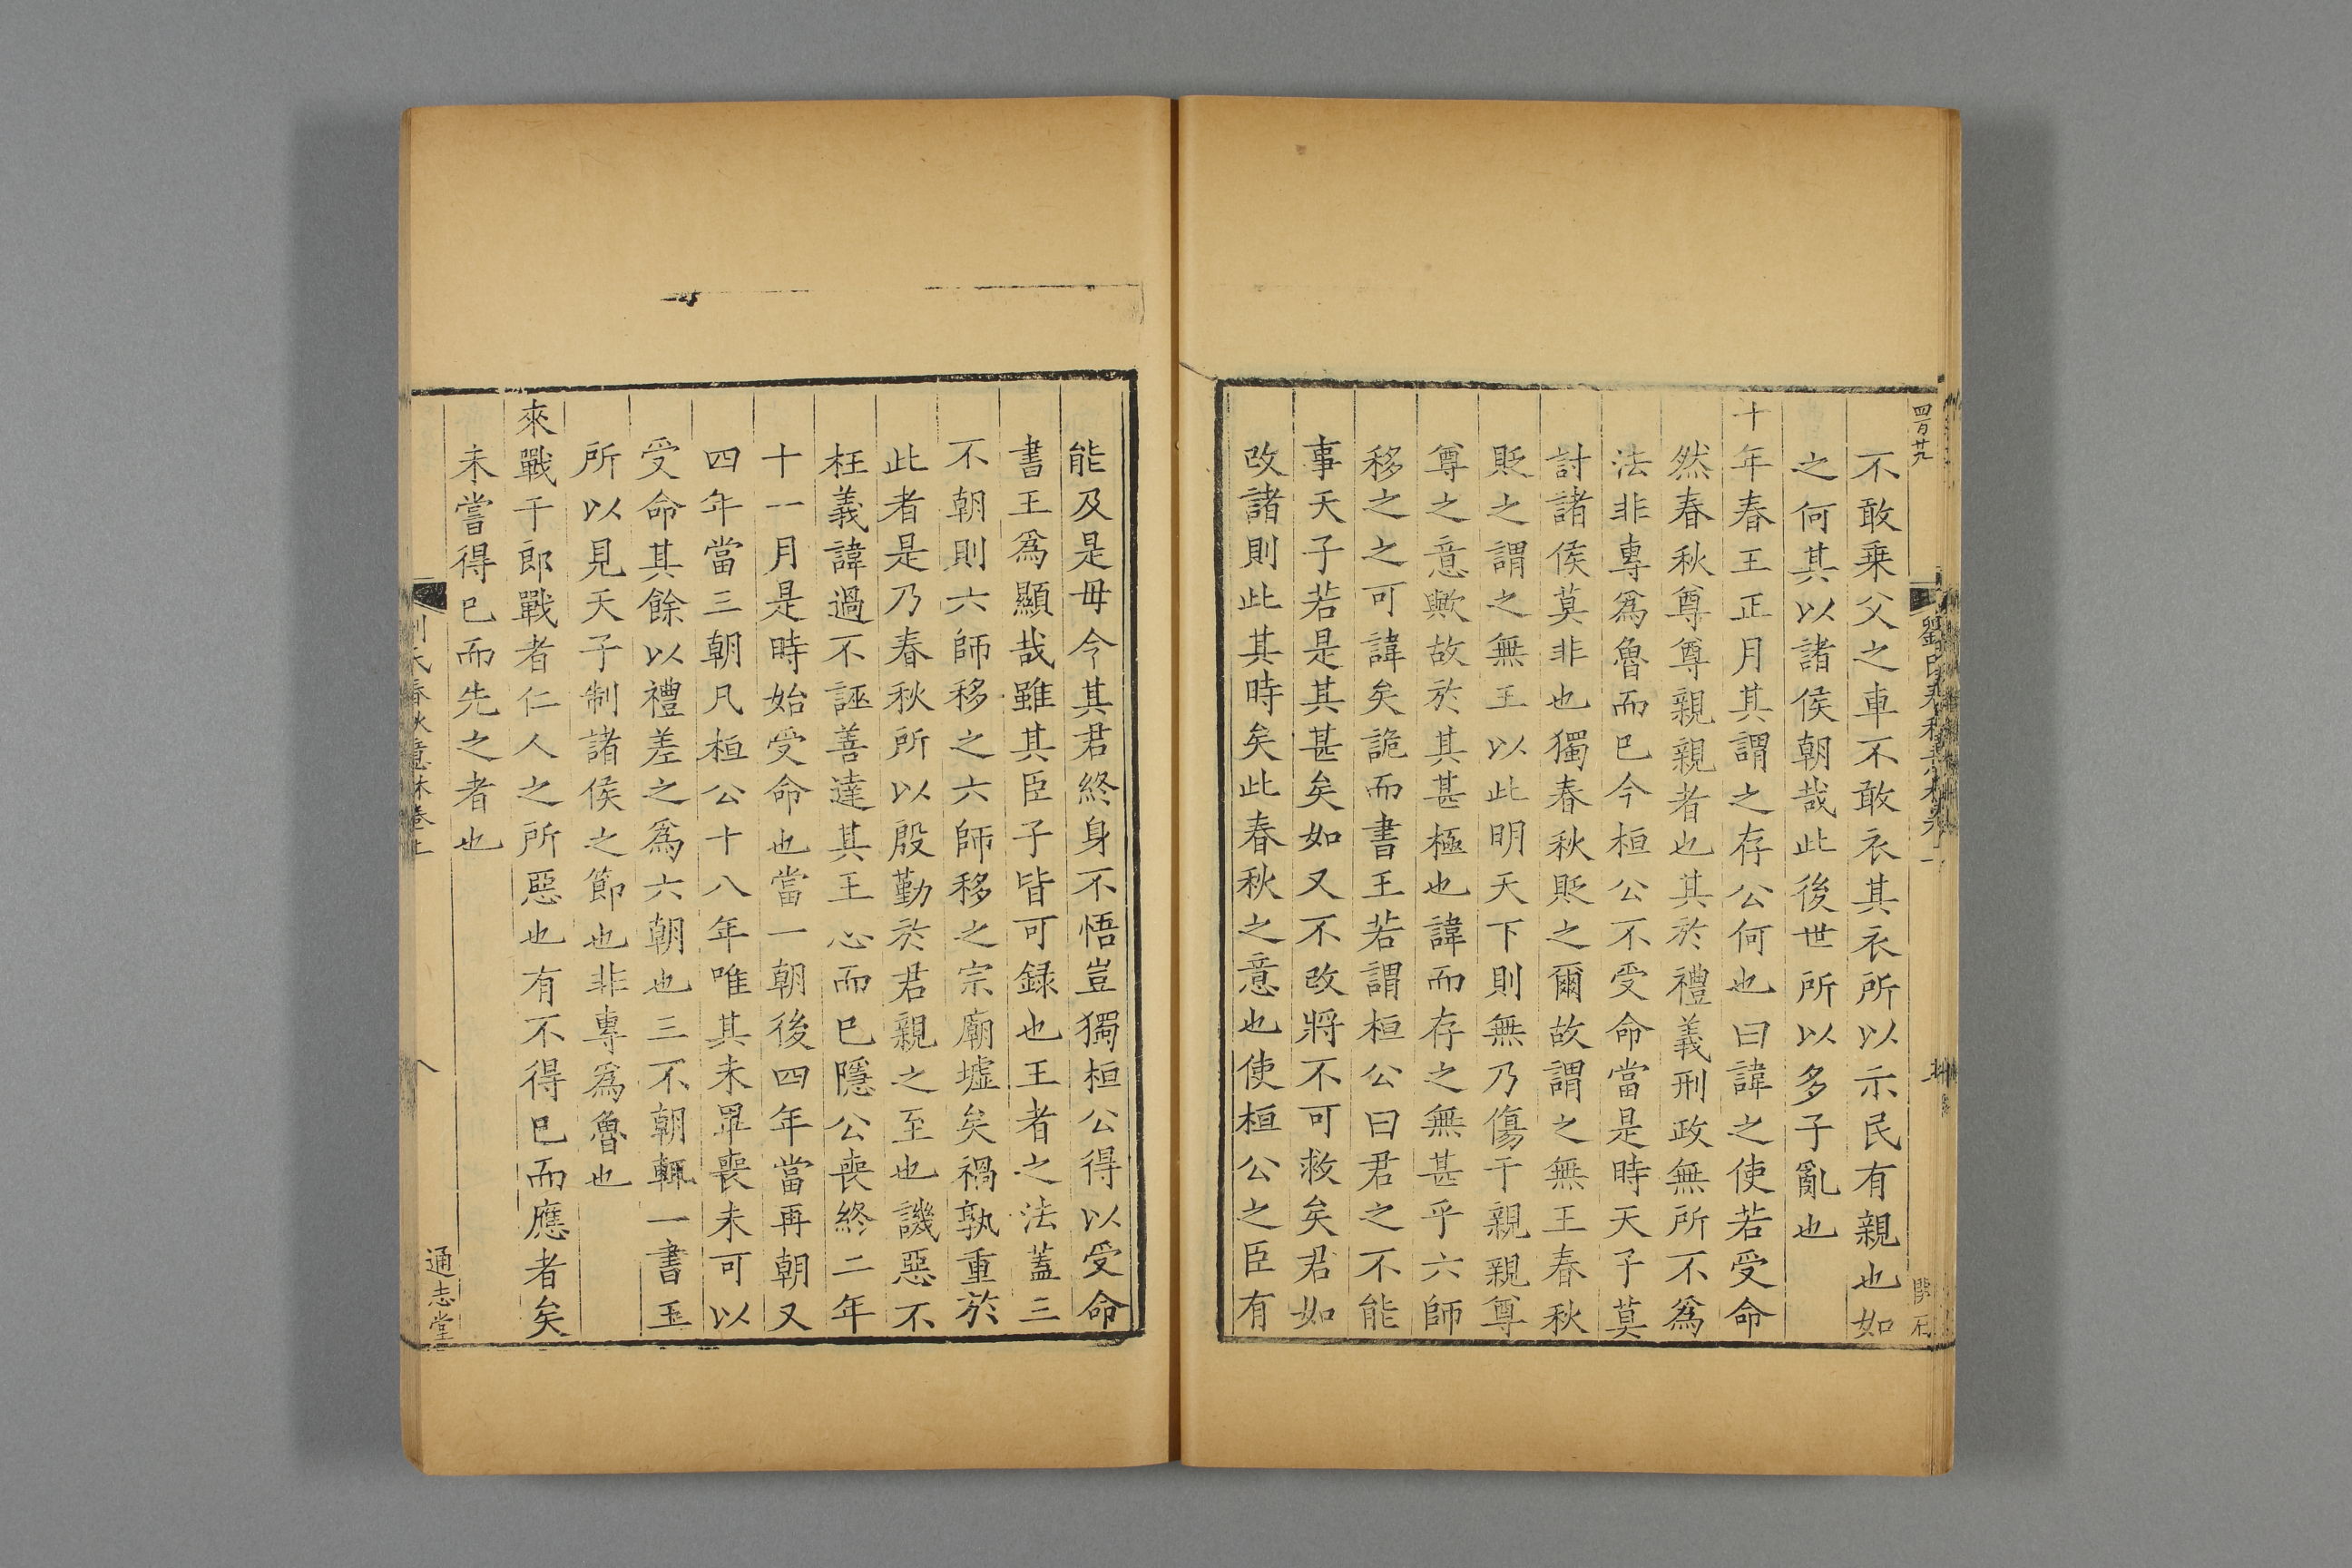 四百廿九
劉氏春秋意林卷上
不敢乗父之車不敢衣其衣所以示民有親也如
之何其以諸侯朝哉此後世所以多子亂也
十年春王正月其謂之存公何也曰諱之使若受命
然春秋尊尊親親者也其於禮義刑政無所不爲
法非專爲魯而巳今桓公不受命當是時天子莫
討諸侯莫非也獨春秋貶之爾故謂之無王春秋
貶之謂之無王以此明天下則無乃傷于親親尊
尊之意歟故於其甚極也諱而存之無甚乎六師
移之之可諱矣詭而書王若謂桓公曰君之不能
事天子若是其甚矣如又不改將不可救矣君如
改諸則此其時矣此春秋之意也使桓公之臣有
能及是毋令其君終身不悟豈獨桓公得以受命
書王爲顯哉雖其臣子皆可録也王者之法蓋三
不朝則六師移之六師移之宗廟墟矣禍孰重於
此者是乃春秋所以殷勤於君親之至也譏惡不
枉義諱過不誣善達其王心而巳隱公喪終二年
十一月是時始受命也當一朝後四年當再朝又
四年當三朝凡桓公十八年唯其未畢喪未可以
受命其餘以禮差之爲六朝也三不朝輒一書王
所以見天子制諸侯之節也非專爲魯也
來戰于郎戰者仁人之所惡也有不得巳而應者矣
未嘗得巳而先之者也
劉氏春秋意林卷上
八
通志堂